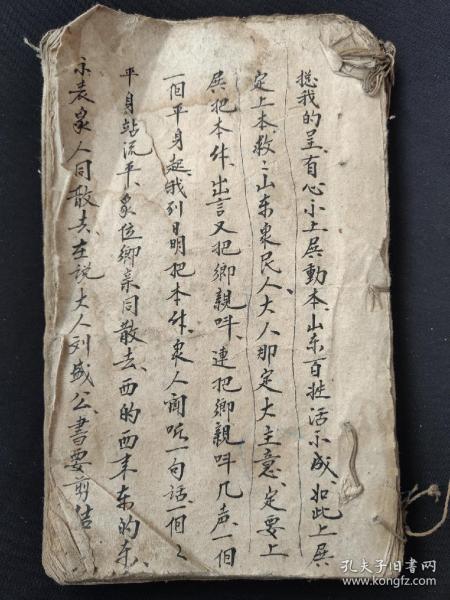 挼我的呈、有心不上殿動本、山东百姓活不成、如此上殿
定上本、救〻山东衆民人、大人那定大主意、定要上
殿把本伴、出言又把鄉親呌、連把鄉親呌几声、一個
一個平身起、我到明日把本伴、衆人闻听一句话一個〻
平身站流平、衆位鄉亲同散去、西的西来东的东、
不表衆人同散去、在説大人刘盛公、書要剪结
孔夫子旧书网
www.kongfz.com